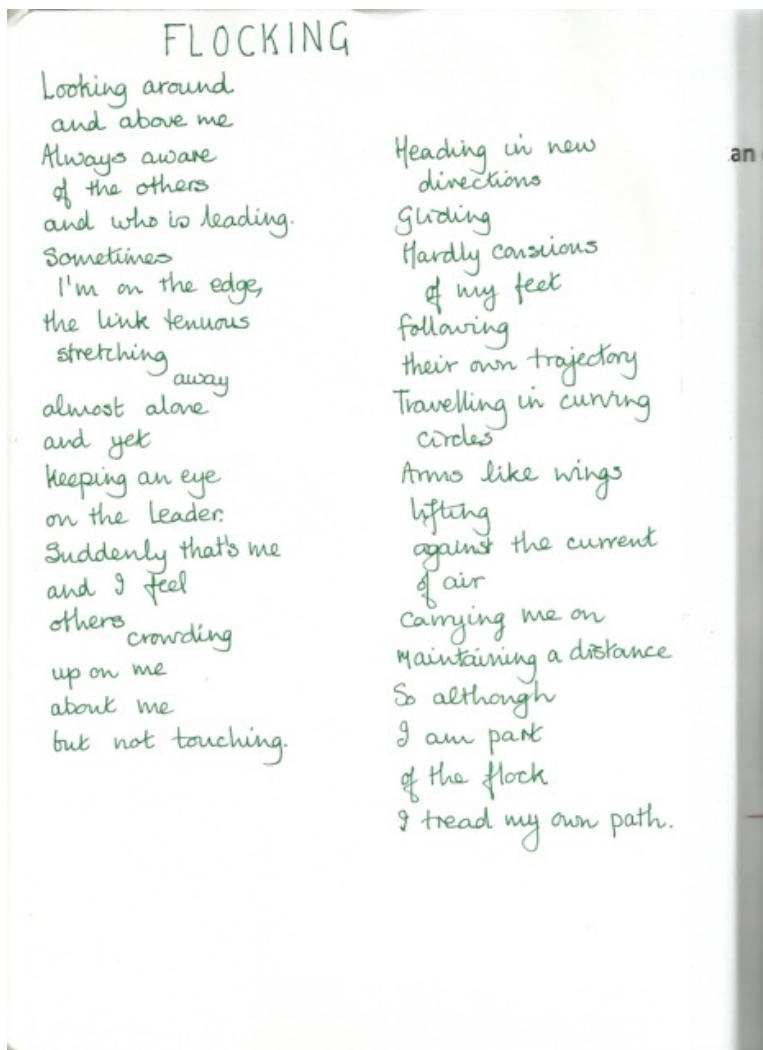 FLOCKING
Looking around
and above me
Always aware
of the others
and who is leading.
Sometimes
I'm on the edge,
the link tenuous
stretching
away
almost alone
and yet
keeping an eye
on the Leader.
Suddenly that's me
and I feel
others
crowding
up on me
about me
but not touching.
Heading in new
directions
Gliding
Hardly conscious
of my feet
following
their own trajectory
Travelling in curving
circles
Arms like wings
lifting
against the current
of air
Carrying me on
Maintaining a distance
So although
I am part
of the flock
I tread my own path.
an